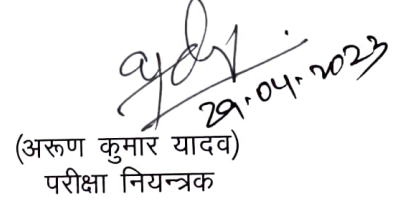 29.04.2023
(अरूण कुमार यादव)
परीक्षा नियन्त्रक